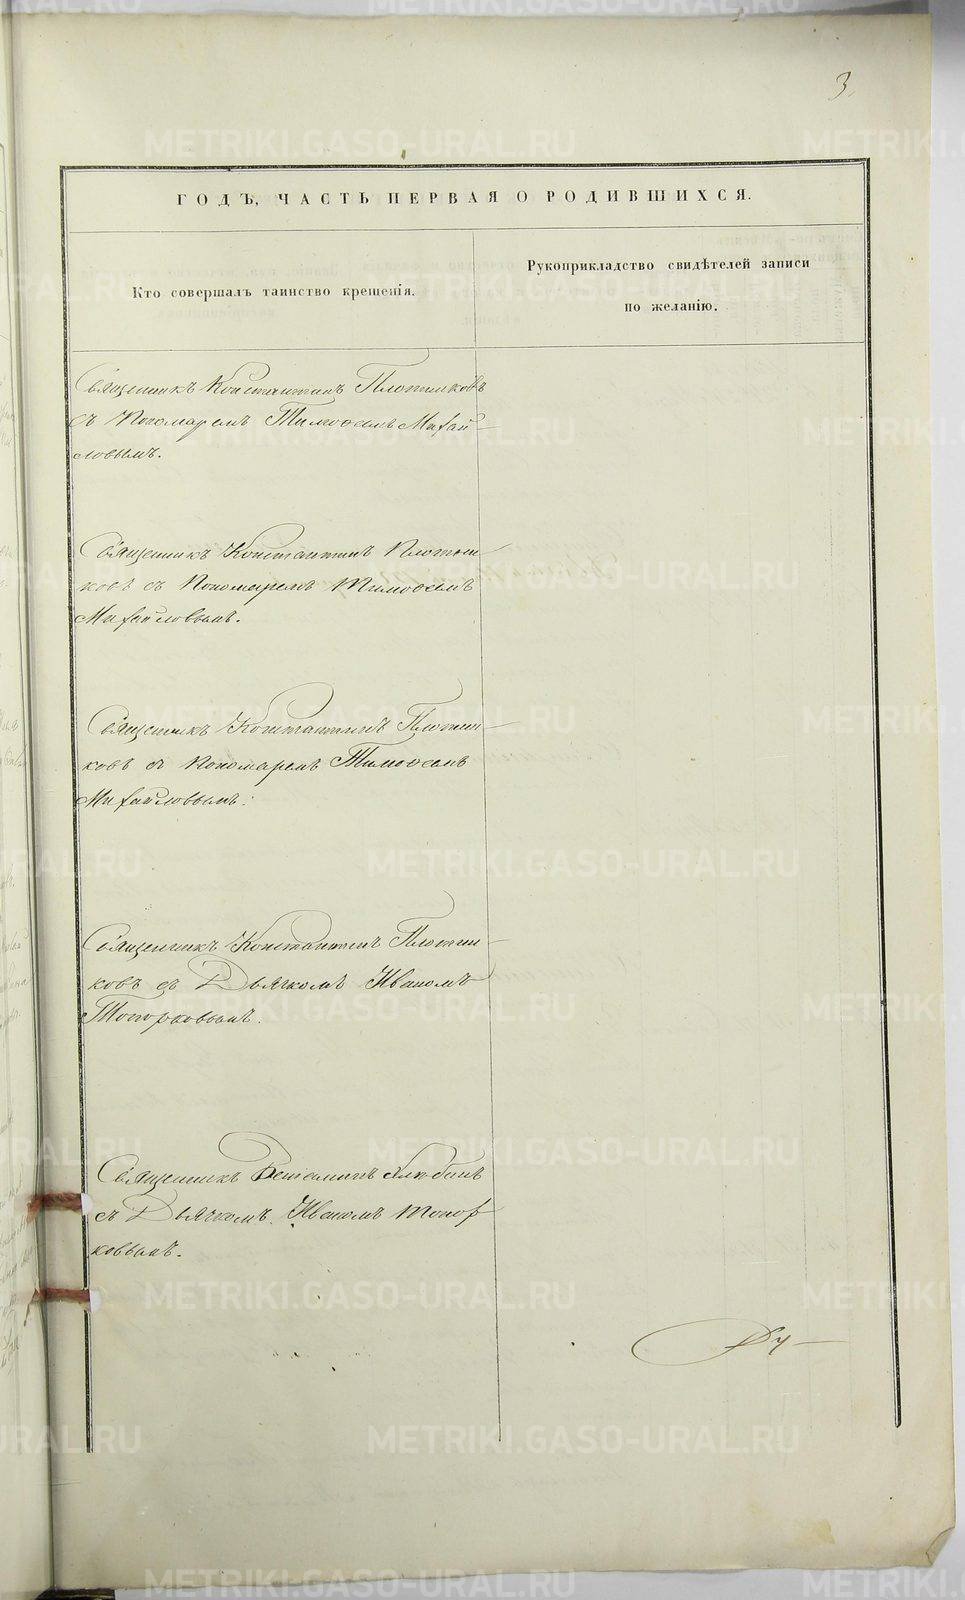 3.
ГОДЪ, ЧАСТЬ ПЕРВАЯ О РОДИВШИХСЯ.
Кто совершалъ таинство крещенія.
Рукоприкладство свидѣтелей записи
по желанію.
Священникъ Константинъ Плотниковъ
съ Пономаремъ Тимоѳеемъ Михай
ловымъ.
Священникъ Константинъ Плотни
ковъ съ Пономаремъ Тимоѳеемъ
Михайловымъ.
Священникъ Константинъ Плотни
ковъ съ Пономаремъ Тимоѳеемъ
Михайловымъ.
Священникъ Константинъ Плотни
ковъ съ Дьячкомъ Иваномъ
Топорковымъ.
Священникъ
съ Дьячкомъ Иваномъ Топор
ковымъ.
METRIKI.GASO-URAL.RU